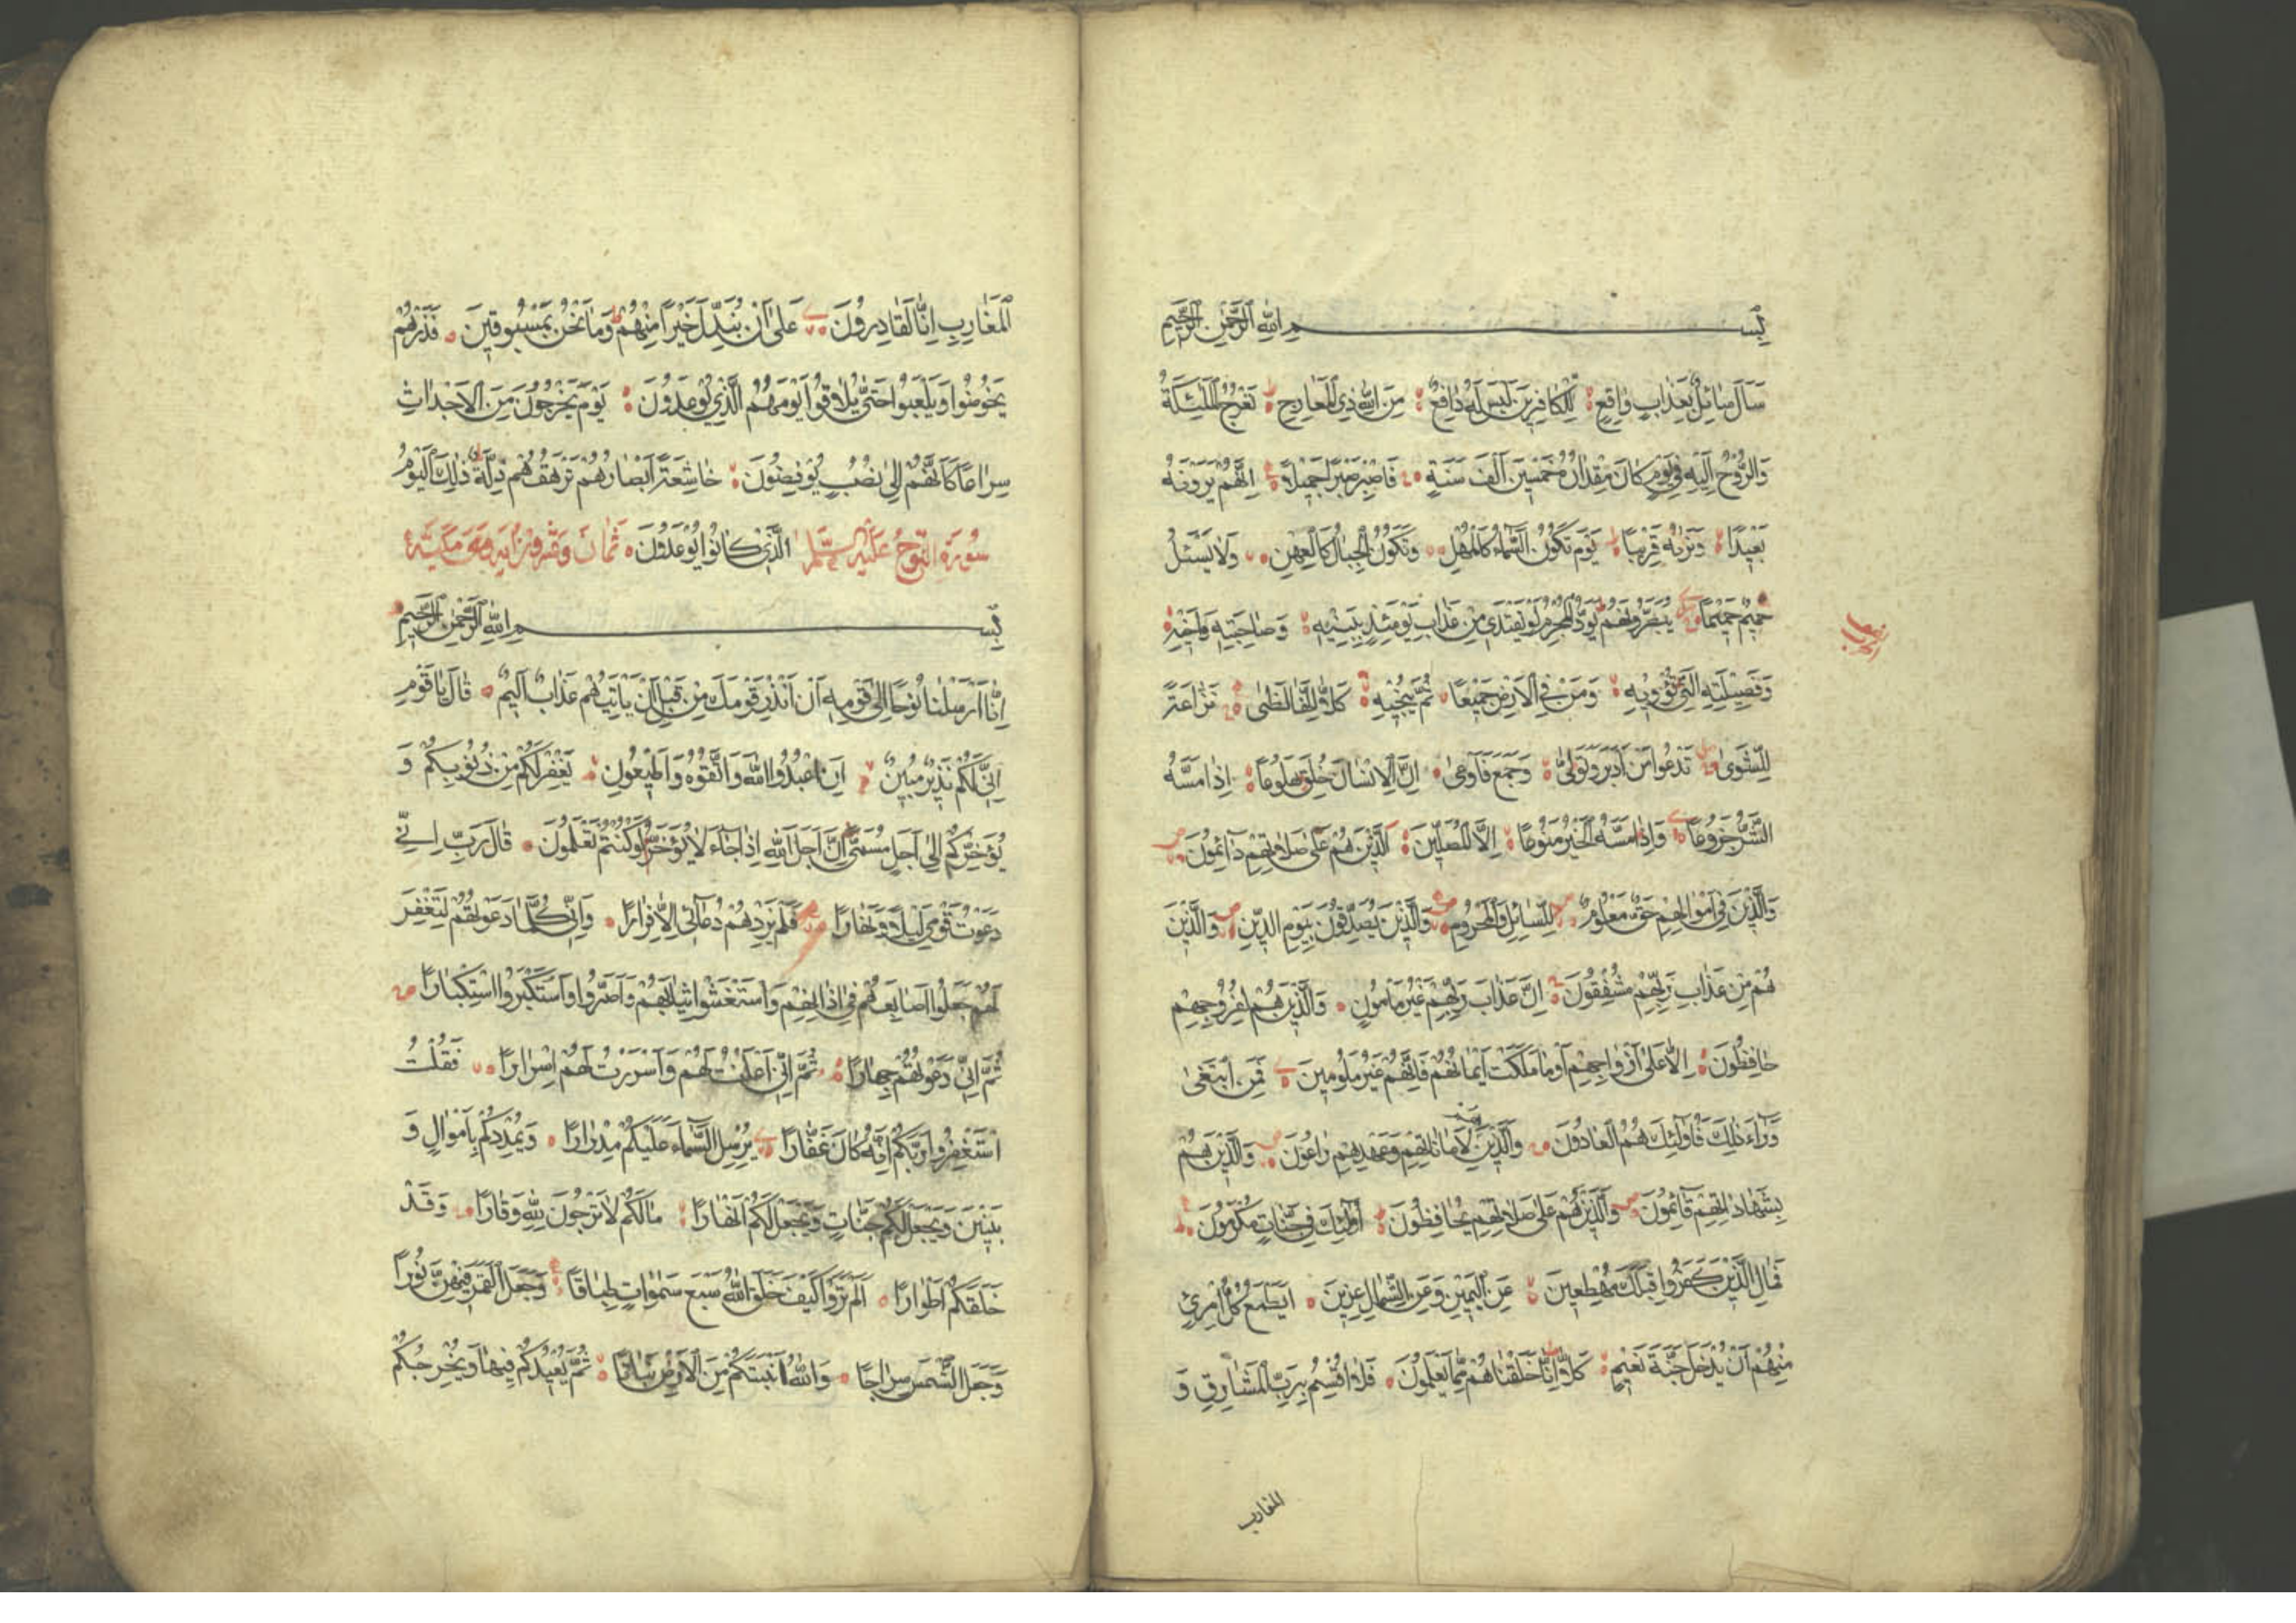 بِسْمِ اللّٰهِ الرَّحْمٰنِ الرَّحِيمِ
سَاَلَ سَائِلٌ بِعَذَابٍ وَاقِعٍ لِلْكَافِرِينَ لَيْسَ لَهُ دَافِعٌ مِنَ اللّٰهِ ذِي الْمَعَارِجِ تَعْرُجُ الْمَلٰئِكَةُ
وَالرُّوحُ اِلَيْهِ فِي يَوْمٍ كَانَ مِقْدَارُهُ خَمْسِينَ اَلْفَ سَنَةٍ فَاصْبِرْ صَبْرًا جَمِيلًا اِنَّهُمْ يَرَوْنَهُ
بَعِيدًا وَنَرٰيهُ قَرِيبًا يَوْمَ تَكُونُ السَّمَاءُ كَالْمُهْلِ وَتَكُونُ الْجِبَالُ كَالْعِهْنِ وَلَا يَسْئَلُ
حَمِيمٌ حَمِيمًا يُبَصَّرُونَهُمْ يَوَدُّ الْمُجْرِمُ لَوْ يَفْتَدِي مِنْ عَذَابِ يَوْمَئِذٍ بِبَنِيهِ وَصَاحِبَتِهِ وَاَخِيهِ
وَفَصِيلَتِهِ الَّتِي تُؤْوِيهِ وَمَنْ فِي الْاَرْضِ جَمِيعًا ثُمَّ يُنْجِيهِ كَلَّا اِنَّهَا لَظٰى نَزَّاعَةً
لِلشَّوٰى تَدْعُوا مَنْ اَدْبَرَ وَتَوَلّٰى وَجَمَعَ فَاَوْعٰى اِنَّ الْاِنْسَانَ خُلِقَ هَلُوعًا اِذَا مَسَّهُ
الشَّرُّ جَزُوعًا وَاِذَا مَسَّهُ الْخَيْرُ مَنُوعًا اِلَّا الْمُصَلِّينَ اَلَّذِينَ هُمْ عَلٰى صَلَاتِهِمْ دَائِمُونَ
وَالَّذِينَ فِي اَمْوَالِهِمْ حَقٌّ مَعْلُومٌ لِلسَّائِلِ وَالْمَحْرُومِ وَالَّذِينَ يُصَدِّقُونَ بِيَوْمِ الدِّينِ وَالَّذِينَ
هُمْ مِنْ عَذَابِ رَبِّهِمْ مُشْفِقُونَ اِنَّ عَذَابَ رَبِّهِمْ غَيْرُ مَأْمُونٍ وَالَّذِينَ هُمْ لِفُرُوجِهِمْ
حَافِظُونَ اِلَّا عَلٰى اَزْوَاجِهِمْ اَوْ مَا مَلَكَتْ اَيْمَانُهُمْ فَاِنَّهُمْ غَيْرُ مَلُومِينَ فَمَنِ ابْتَغٰى
وَرَاءَ ذٰلِكَ فَاُولٰئِكَ هُمُ الْعَادُونَ وَالَّذِينَ هُمْ لِاَمَانَاتِهِمْ وَعَهْدِهِمْ رَاعُونَ وَالَّذِينَ هُمْ
بِشَهَادَاتِهِمْ قَائِمُونَ وَالَّذِينَ هُمْ عَلٰى صَلَاتِهِمْ يُحَافِظُونَ اُولٰئِكَ فِي جَنَّاتٍ مُكْرَمُونَ
فَمَالِ الَّذِينَ كَفَرُوا قِبَلَكَ مُهْطِعِينَ عَنِ الْيَمِينِ وَعَنِ الشِّمَالِ عِزِينَ اَيَطْمَعُ كُلُّ امْرِئٍ
مِنْهُمْ اَنْ يُدْخَلَ جَنَّةَ نَعِيمٍ كَلَّا اِنَّا خَلَقْنَاهُمْ مِمَّا يَعْلَمُونَ فَلَا اُقْسِمُ بِرَبِّ الْمَشَارِقِ وَ
المغارب
الْمَغَارِبِ اِنَّا لَقَادِرُونَ عَلٰى اَنْ نُبَدِّلَ خَيْرًا مِنْهُمْ وَمَا نَحْنُ بِمَسْبُوقِينَ فَذَرْهُمْ
يَخُوضُوا وَيَلْعَبُوا حَتّٰى يُلَاقُوا يَوْمَهُمُ الَّذِي يُوعَدُونَ يَوْمَ يَخْرُجُونَ مِنَ الْاَجْدَاثِ
سِرَاعًا كَاَنَّهُمْ اِلٰى نُصُبٍ يُوفِضُونَ خَاشِعَةً اَبْصَارُهُمْ تَرْهَقُهُمْ ذِلَّةٌ ذٰلِكَ الْيَوْمُ
الَّذِي كَانُوا يُوعَدُونَ سُورَةُ النُّوحِ عَلَيْهِ السَّلَام ثَمَانَ وَعِشْرُونَ اٰيَة وَهِيَ مَكِّيَّة
بِسْمِ اللّٰهِ الرَّحْمٰنِ الرَّحِيمِ
اِنَّا اَرْسَلْنَا نُوحًا اِلٰى قَوْمِهِ اَنْ اَنْذِرْ قَوْمَكَ مِنْ قَبْلِ اَنْ يَأْتِيَهُمْ عَذَابٌ اَلِيمٌ قَالَ يَا قَوْمِ
اِنِّي لَكُمْ نَذِيرٌ مُبِينٌ اَنِ اعْبُدُوا اللّٰهَ وَاتَّقُوهُ وَاَطِيعُونِ يَغْفِرْ لَكُمْ مِنْ ذُنُوبِكُمْ وَ
يُؤَخِّرْكُمْ اِلٰى اَجَلٍ مُسَمًّى اِنَّ اَجَلَ اللّٰهِ اِذَا جَاءَ لَا يُؤَخَّرُ لَوْ كُنْتُمْ تَعْلَمُونَ قَالَ رَبِّ اِنِّي
دَعَوْتُ قَوْمِي لَيْلًا وَنَهَارًا فَلَمْ يَزِدْهُمْ دُعَائِي اِلَّا فِرَارًا وَاِنِّي كُلَّمَا دَعَوْتُهُمْ لِتَغْفِرَ
لَهُمْ جَعَلُوا اَصَابِعَهُمْ فِي اٰذَانِهِمْ وَاسْتَغْشَوْا ثِيَابَهُمْ وَاَصَرُّوا وَاسْتَكْبَرُوا اسْتِكْبَارًا
ثُمَّ اِنِّي دَعَوْتُهُمْ جِهَارًا ثُمَّ اِنِّي اَعْلَنْتُ لَهُمْ وَاَسْرَرْتُ لَهُمْ اِسْرَارًا فَقُلْتُ
اسْتَغْفِرُوا رَبَّكُمْ اِنَّهُ كَانَ غَفَّارًا يُرْسِلِ السَّمَاءَ عَلَيْكُمْ مِدْرَارًا وَيُمْدِدْكُمْ بِاَمْوَالٍ وَ
بَنِينَ وَيَجْعَلْ لَكُمْ جَنَّاتٍ وَيَجْعَلْ لَكُمْ اَنْهَارًا مَا لَكُمْ لَا تَرْجُونَ لِلّٰهِ وَقَارًا وَقَدْ
خَلَقَكُمْ اَطْوَارًا اَلَمْ تَرَوْا كَيْفَ خَلَقَ اللّٰهُ سَبْعَ سَمٰوَاتٍ طِبَاقًا وَجَعَلَ الْقَمَرَ فِيهِنَّ نُورًا
وَجَعَلَ الشَّمْسَ سِرَاجًا وَاللّٰهُ اَنْبَتَكُمْ مِنَ الْاَرْضِ نَبَاتًا ثُمَّ يُعِيدُكُمْ فِيهَا وَيُخْرِجُكُمْ